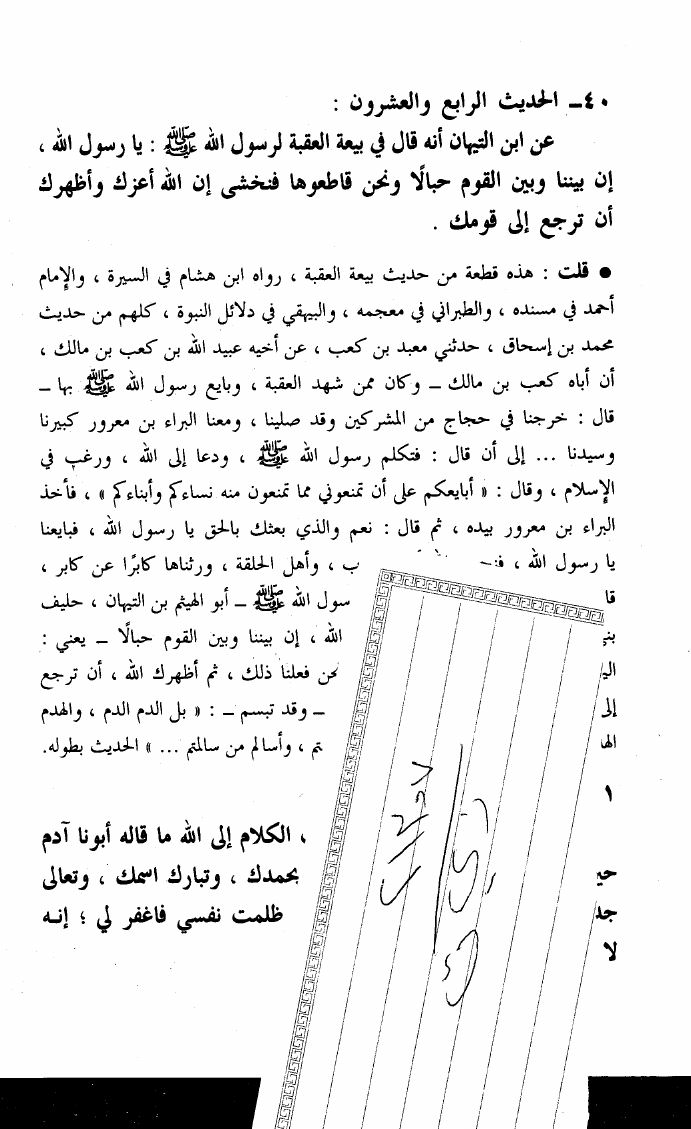 ٤٠ـ الحديث الرابع والعشرون :
عن ابن التيهان أنه قال في بيعة العقبة لرسول الله ﷺ : يا رسول الله ،
إن بيننا وبين القوم حبالًا ونحن قاطعوها فنخشى إن الله أعزك وأظهرك
أن ترجع إلى قومك .
● قلت : هذه قطعة من حديث بيعة العقبة ، رواه ابن هشام في السيرة ، والإمام
أحمد في مسنده ، والطبراني في معجمه ، والبيهقي في دلائل النبوة ، كلهم من حديث
محمد بن إسحاق ، حدثني معبد بن كعب ، عن أخيه عبيد الله بن كعب بن مالك ،
أن أباه كعب بن مالك ـ وكان ممن شهد العقبة ، وبايع رسول الله ﷺ بها ـ
قال : خرجنا في حجاج من المشركين وقد صلينا ، ومعنا البراء بن معرور كبيرنا
وسيدنا ... إلى أن قال : فتكلم رسول الله ﷺ ، ودعا إلى الله ، ورغب في
الإسلام ، وقال : « أبايعكم على أن تمنعوني مما تمنعون منه نساءكم وأبناءكم » ، فأخذ
البراء بن معرور بيده ، ثم قال : نعم والذي بعثك بالحق يا رسول الله ، فبايعنا
يا رسول الله ، ب ، وأهل الحلقة ، ورثناها كابرًا عن كابر ،
قا سول الله ﷺ ـ أبو الهيثم بن التيهان ، حليف
بني الله ، إن بيننا وبين القوم حبالًا ـ يعني :
الي نحن فعلنا ذلك ، ثم أظهرك الله ، أن ترجع
إلى ـ وقد تبسم ـ : « بل الدم الدم ، والهدم
الها تم ، وأسالم من سالمتم ... » الحديث بطوله.
١
، الكلام إلى الله ما قاله أبونا آدم
حي بحمدك ، وتبارك اسمك ، وتعالى
جد ظلمت نفسي فاغفر لي ؛ إنه
لا